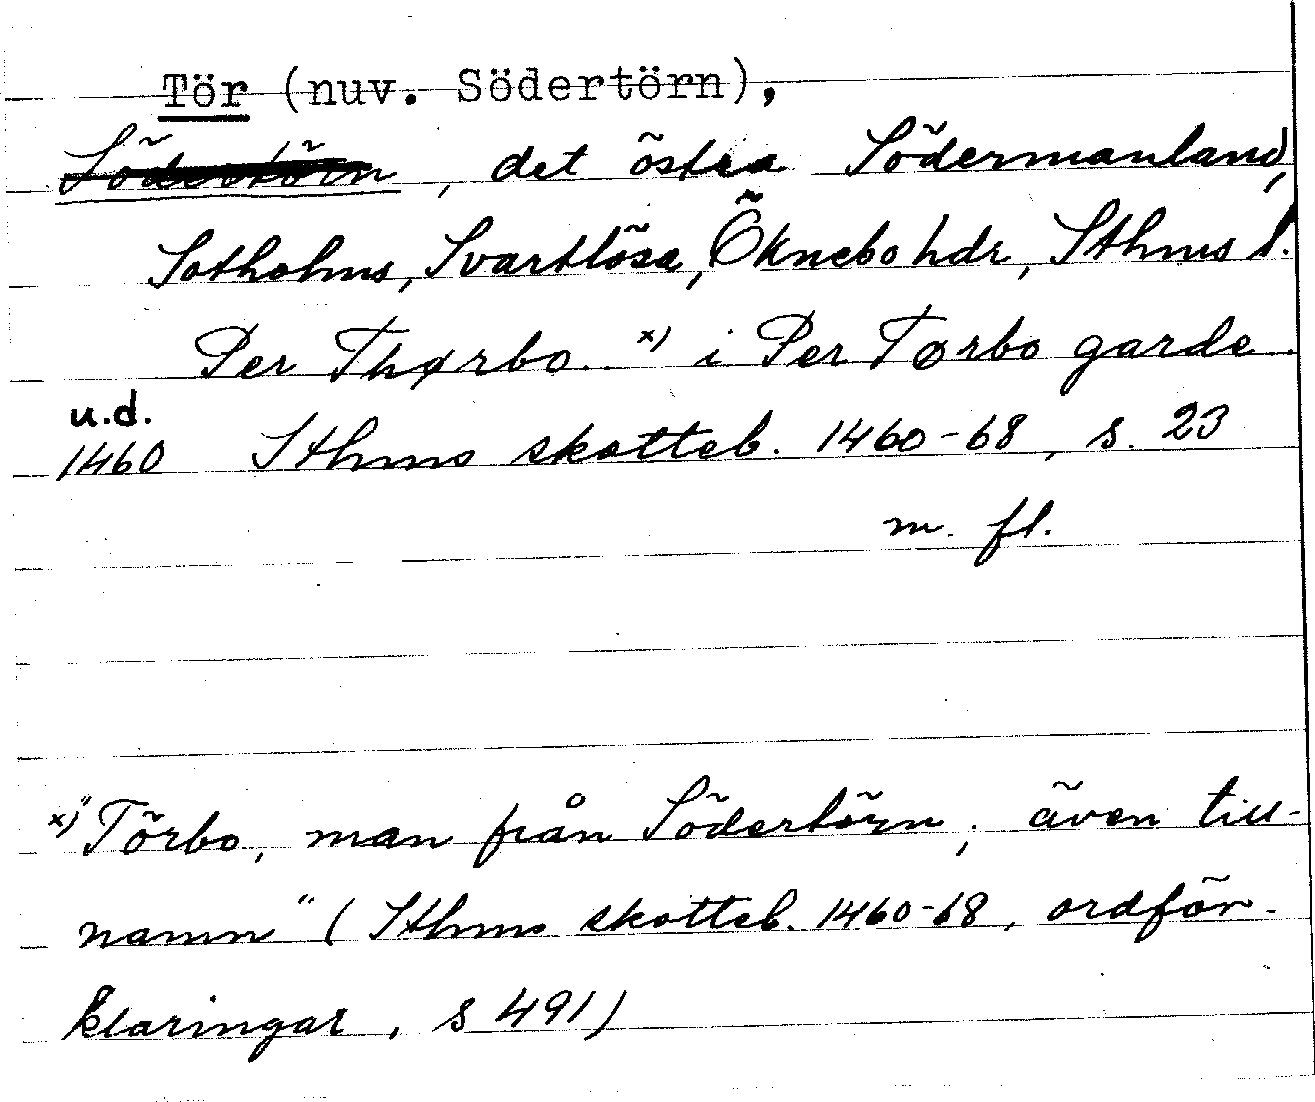 Tör (nuv. Södertörn),
Södertörn, det östra Södermanland,
Sotholms, Svartlösa, Öknebo hdr, Sthms l.
Per Thørbo. x) i Per Tørbo garde
u.d.
1460 Sthms skatteb. 1460-68, s. 23
m. fl.
x) "Törbo, man från Södertörn; även till-
namn" (Sthms skatteb. 1460-68, ordför-
klaringar, s 491)